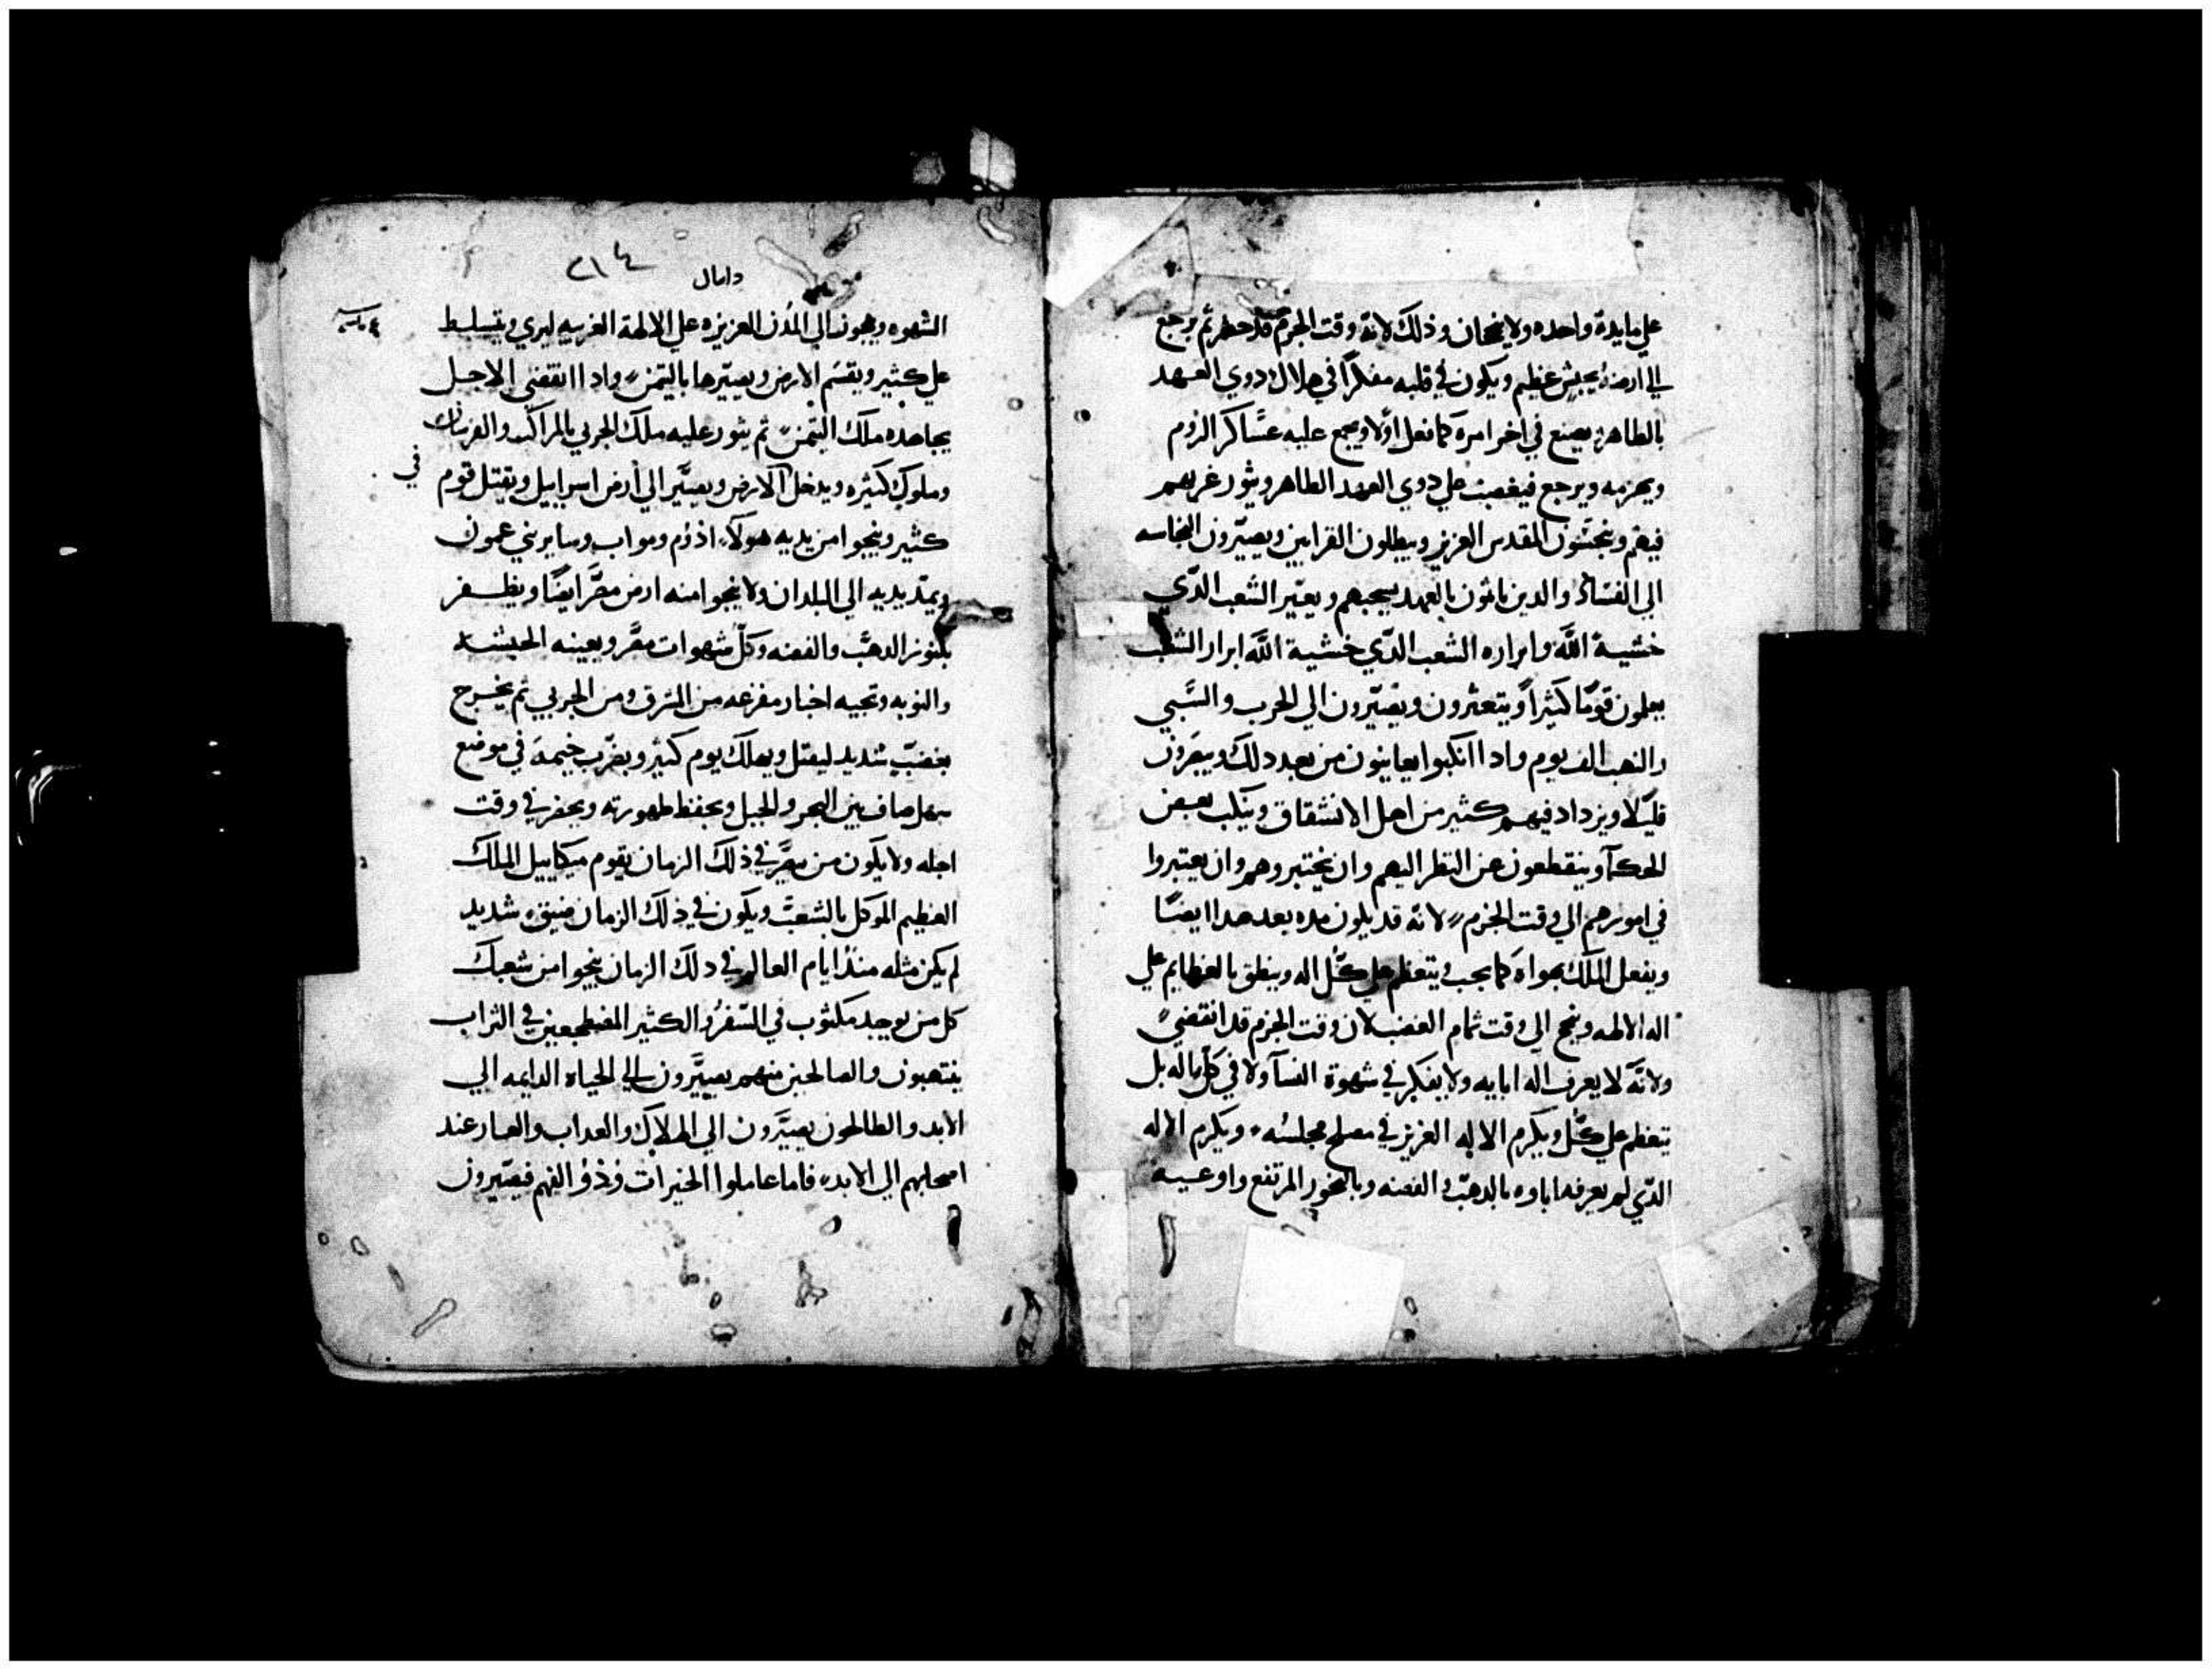 علي مايدة واحده ولا ينجحان وذلك لانه وقت الجزم قد حضر ثم يرجع
الي ارضه بجيش عظيم ويكون في قلبه مفكرًا في هلاك ذوي العهد
بالطاهر يصنع في اخر امره كما فعل اولا ويجمع عليه عساكر الروم
ويهزمه ويرجع فيغضب علي دوي العهد الطاهر ويثور غربهم
فيقم وينجسون المقدس العزيز ويبطلون القرابين ويصيّرون النجاسه
الي الفساد والدين ياتون بالعهد يسحبهم ويصيّر الشعب الدّي
خشية الله وابراره الشعب الدّي خشية الله ابرار الشعب
يعلمون قومًا كثيرًا ويتعثرون ويصيّرون الي الحرب والسّبي
والنهب الف يوم وادا انكبوا يعاينون من بعد دلك ويبقرون
قليلا ويزداد فيهم كثير من اهل الانشقاق وينكب بعض
الحكمآ وينقطعون عن النظر اليهم وان يختبروهم وان يعتبروا
في امورهم الي وقت الجزم لانه قد يكون مده بعد هدا ايضًا
ويفعل الملك بهواه كما يحب ويتعظم علي كل اله وينطق بالعظايم علي
اله الالهه وينجح الي وقت تمام الغضب لان وقت الجزم قد انقضي
ولانّه لا يعرف اله ابايه ولا يفكر في شهوة النسآ ولا في كل ماله بل
يتعظم علي كل ويكرم الاله العزيز في مصلح مجلسه ويكرم الاله
الدّي لم يعرفه اباوه بالدهب والفضه وبالبخور المرتفع واوعيه
دانيال ٢١٤
الشهوه ويهون الي المدن العزيزه علي الالهة الغريبه ليري ويتسلط
علي كثير ويقسم الارض ويصيّرها بالتيمن وادا انقضي الاجل
يجاهده ملك التيمن ثم يثور عليه ملك الجربي بالمراكب والفرسان
وملوك كثيره ويدخل الارض ويصيّر الي أرض اسراييل ويقتل قوم
كثير وينجوا من يديه هولاء اذوم ومواب وساير بني عمون
ويمد يديه الي البلدان ولا ينجوا منه ارض مصر ايضًا ويظفر
بكنوز الدهب والفضه وكل شهوات مصر ويعينه الحبشه
والنوبه وتجيه اخبار مفزعه من الشرق ومن الجربي ثم يخرج
بغضب شديد ليقتل ويهلك يوم كثير ويضرب خيمه في موضع
سهل صاف بين البحر والجبل ويحفظ طهورته ويحضر في وقت
اجله ولا يكون من مصر في ذلك الزمان يقوم ميكاييل الملك
العظيم الموكل بالشعب ويكون في ذلك الزمان ضيق شديد
لم يكن مثله منذ ايام العالم في دلك الزمان ينجوا من شعبك
كل من يوجد مكتوب في السّفر والكثير المضطجعين في التراب
ينتهبون والصالحين منهم يصيّرون الي الحياه الدايمه الي
الابد والطالحون يصيّرون الي الهلاك والعداب والعار عند
اصحابهم الي الابد فاما عاملوا الخيرات وذوُ الفهم فيصيّرون